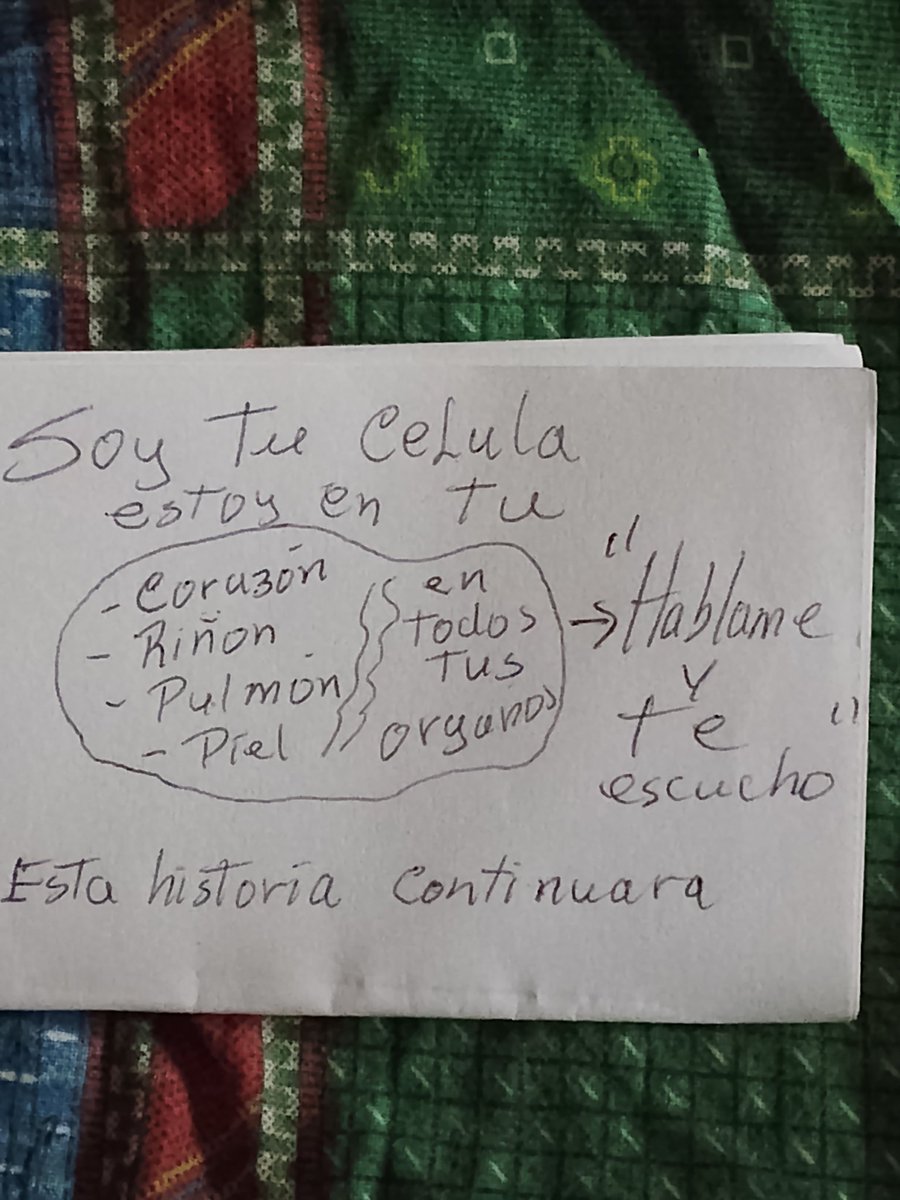 Soy Tu CeLula
estoy en tu
- Corazón
- Riñon
- Pulmón
- Piel
en
todos
Tus
organos
→ "Hablame
y
te
escucho"
Esta historia continuara